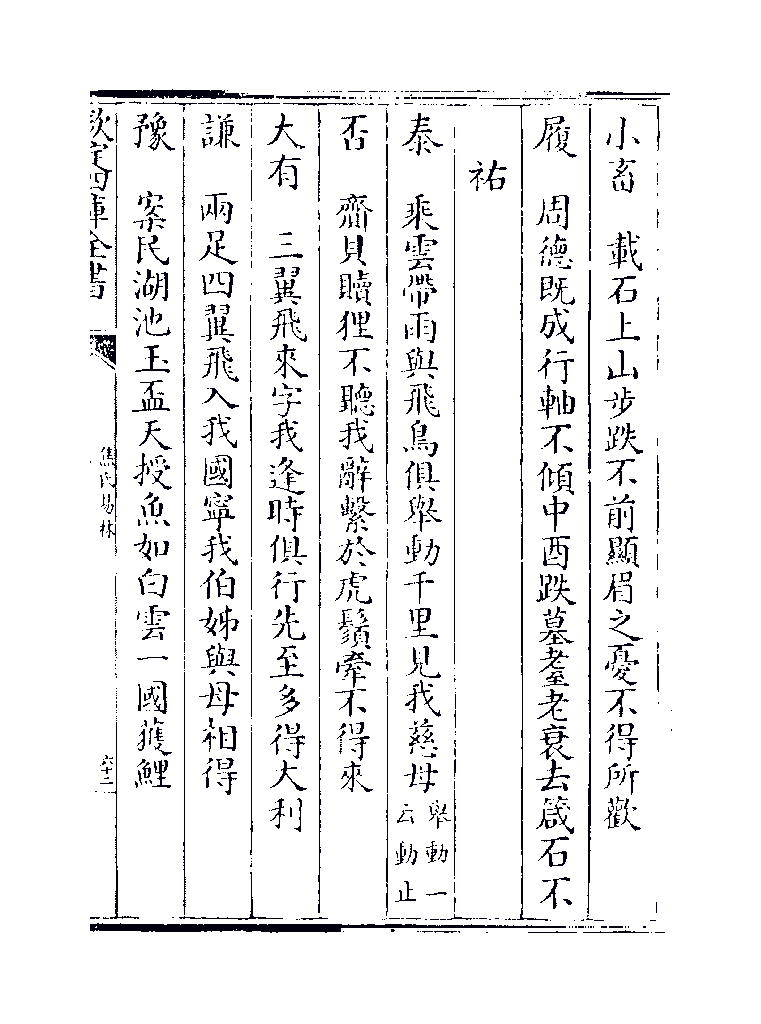 小畜　載石上山步跌不前顯眉之憂不得所歡
履　周德既成行軸不傾中酉跌墓耋老衰去箴石不
祐
泰　乘雲帶雨與飛鳥俱舉動千里見我慈母舉動一云動止
否　齎貝贖狸不聽我辭繫於虎鬚牽不得來
大有　三翼飛來字我逢時俱行先至多得大利
謙　兩足四翼飛入我國寧我伯姊與母相得
豫　案民湖池玉盃天授魚如白雲一國獲鯉
欽定四庫全書
焦氏易林
六十二